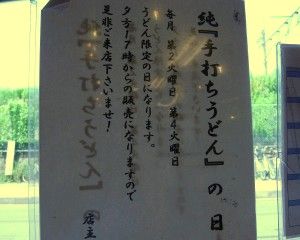 純『手打ちうどん』の日
毎月、第2火曜日 第4火曜日
うどん限定の日になります。
夕方17時からの販売になりますので
是非ご来店下さいませ!
店主